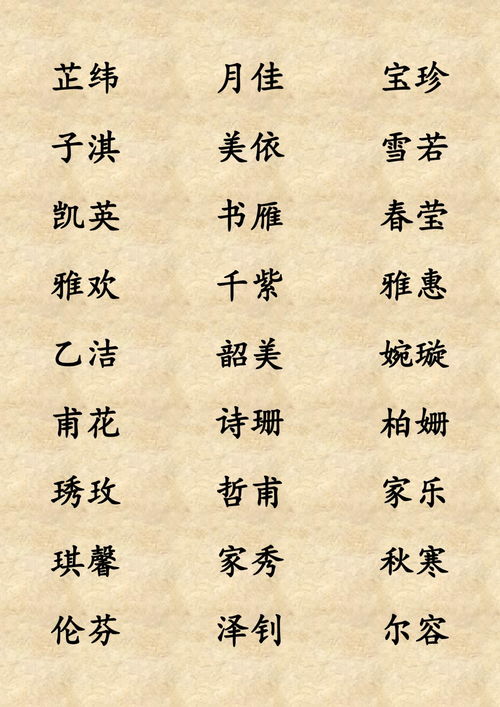 芷纬 月佳 宝珍
子淇 美依 雪若
凯英 书雁 春莹
雅欢 千紫 雅惠
乙洁 韶美 婉璇
甫花 诗珊 柏姗
琇玫 哲甫 家乐
琪馨 家秀 秋寒
伦芬 泽钊 尔容